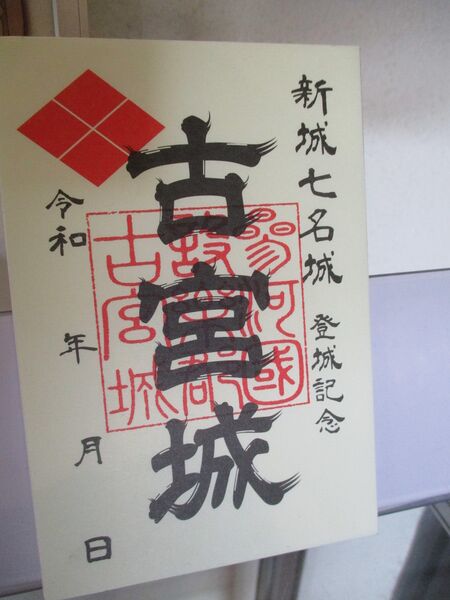 新城七名城 登城記念
古宮城
参河國
設樂郡
古宮城
令和 年 月 日